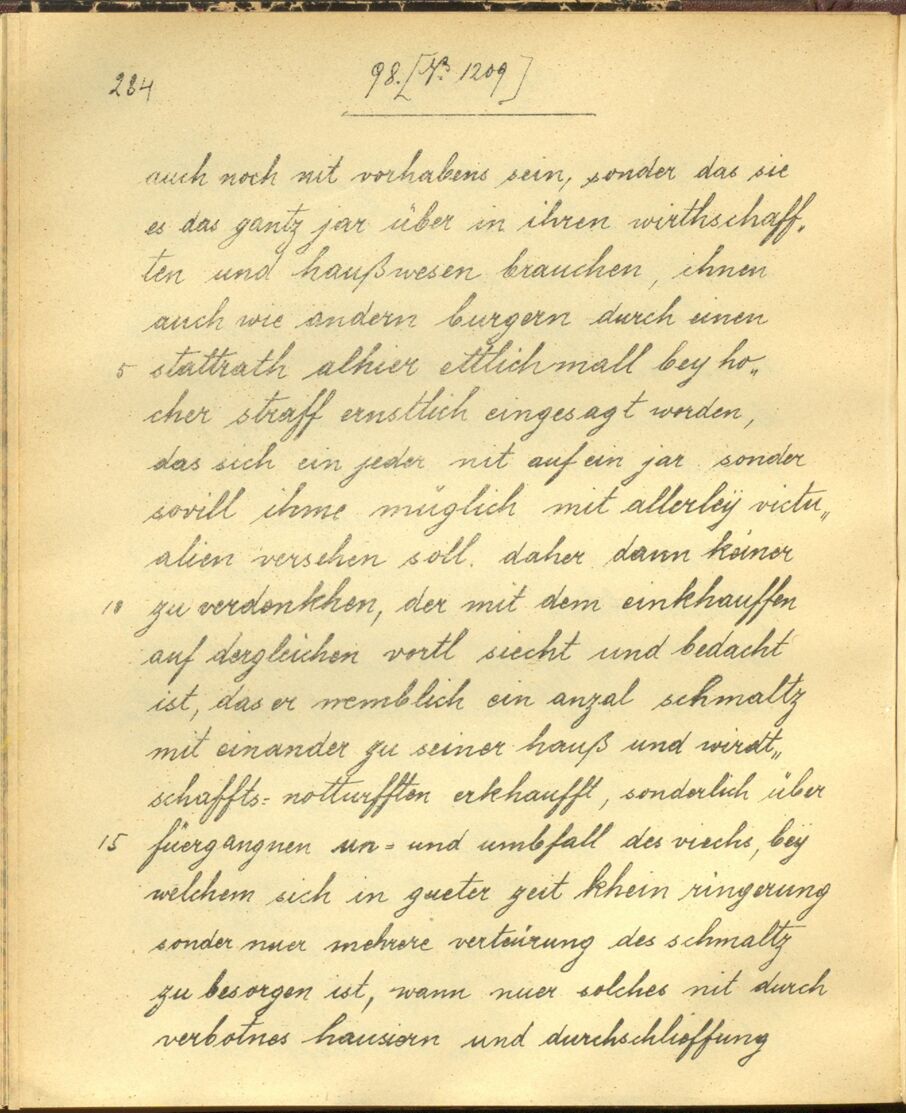 284
98. [№ 1209]
auch noch nit vorhabens sein, sonder das sie
es das gantz jar über in ihren wirthschaff„
ten und haußwesen brauchen, ihnen
auch wie andern burgern durch einen
5 stattrath alhier ettlichmall bey ho„
cher straff ernstlich eingesagt worden,
das sich ein jeder nit auf ein jar sonder
sovill ihme müglich mit allerleÿ victu„
alien versehen soll. daher dann keiner
10 zu verdenkhen, der mit dem einkhauffen
auf dergleichen vortl siecht und bedacht
ist, das er nemblich ein anzal schmaltz
mit einander zu seiner hauß und wirdt„
schaffts= notturfften erkhaufft, sonderlich über
15 füergangnen un= und umbfall des viechs, beÿ
welchem sich in gueter zeit khein ringerung
sonder nuer mehrere verteürung des schmaltz
zu besorgen ist, wann nuer solches nit durch
verbotnes hausiern und durchschlieffung